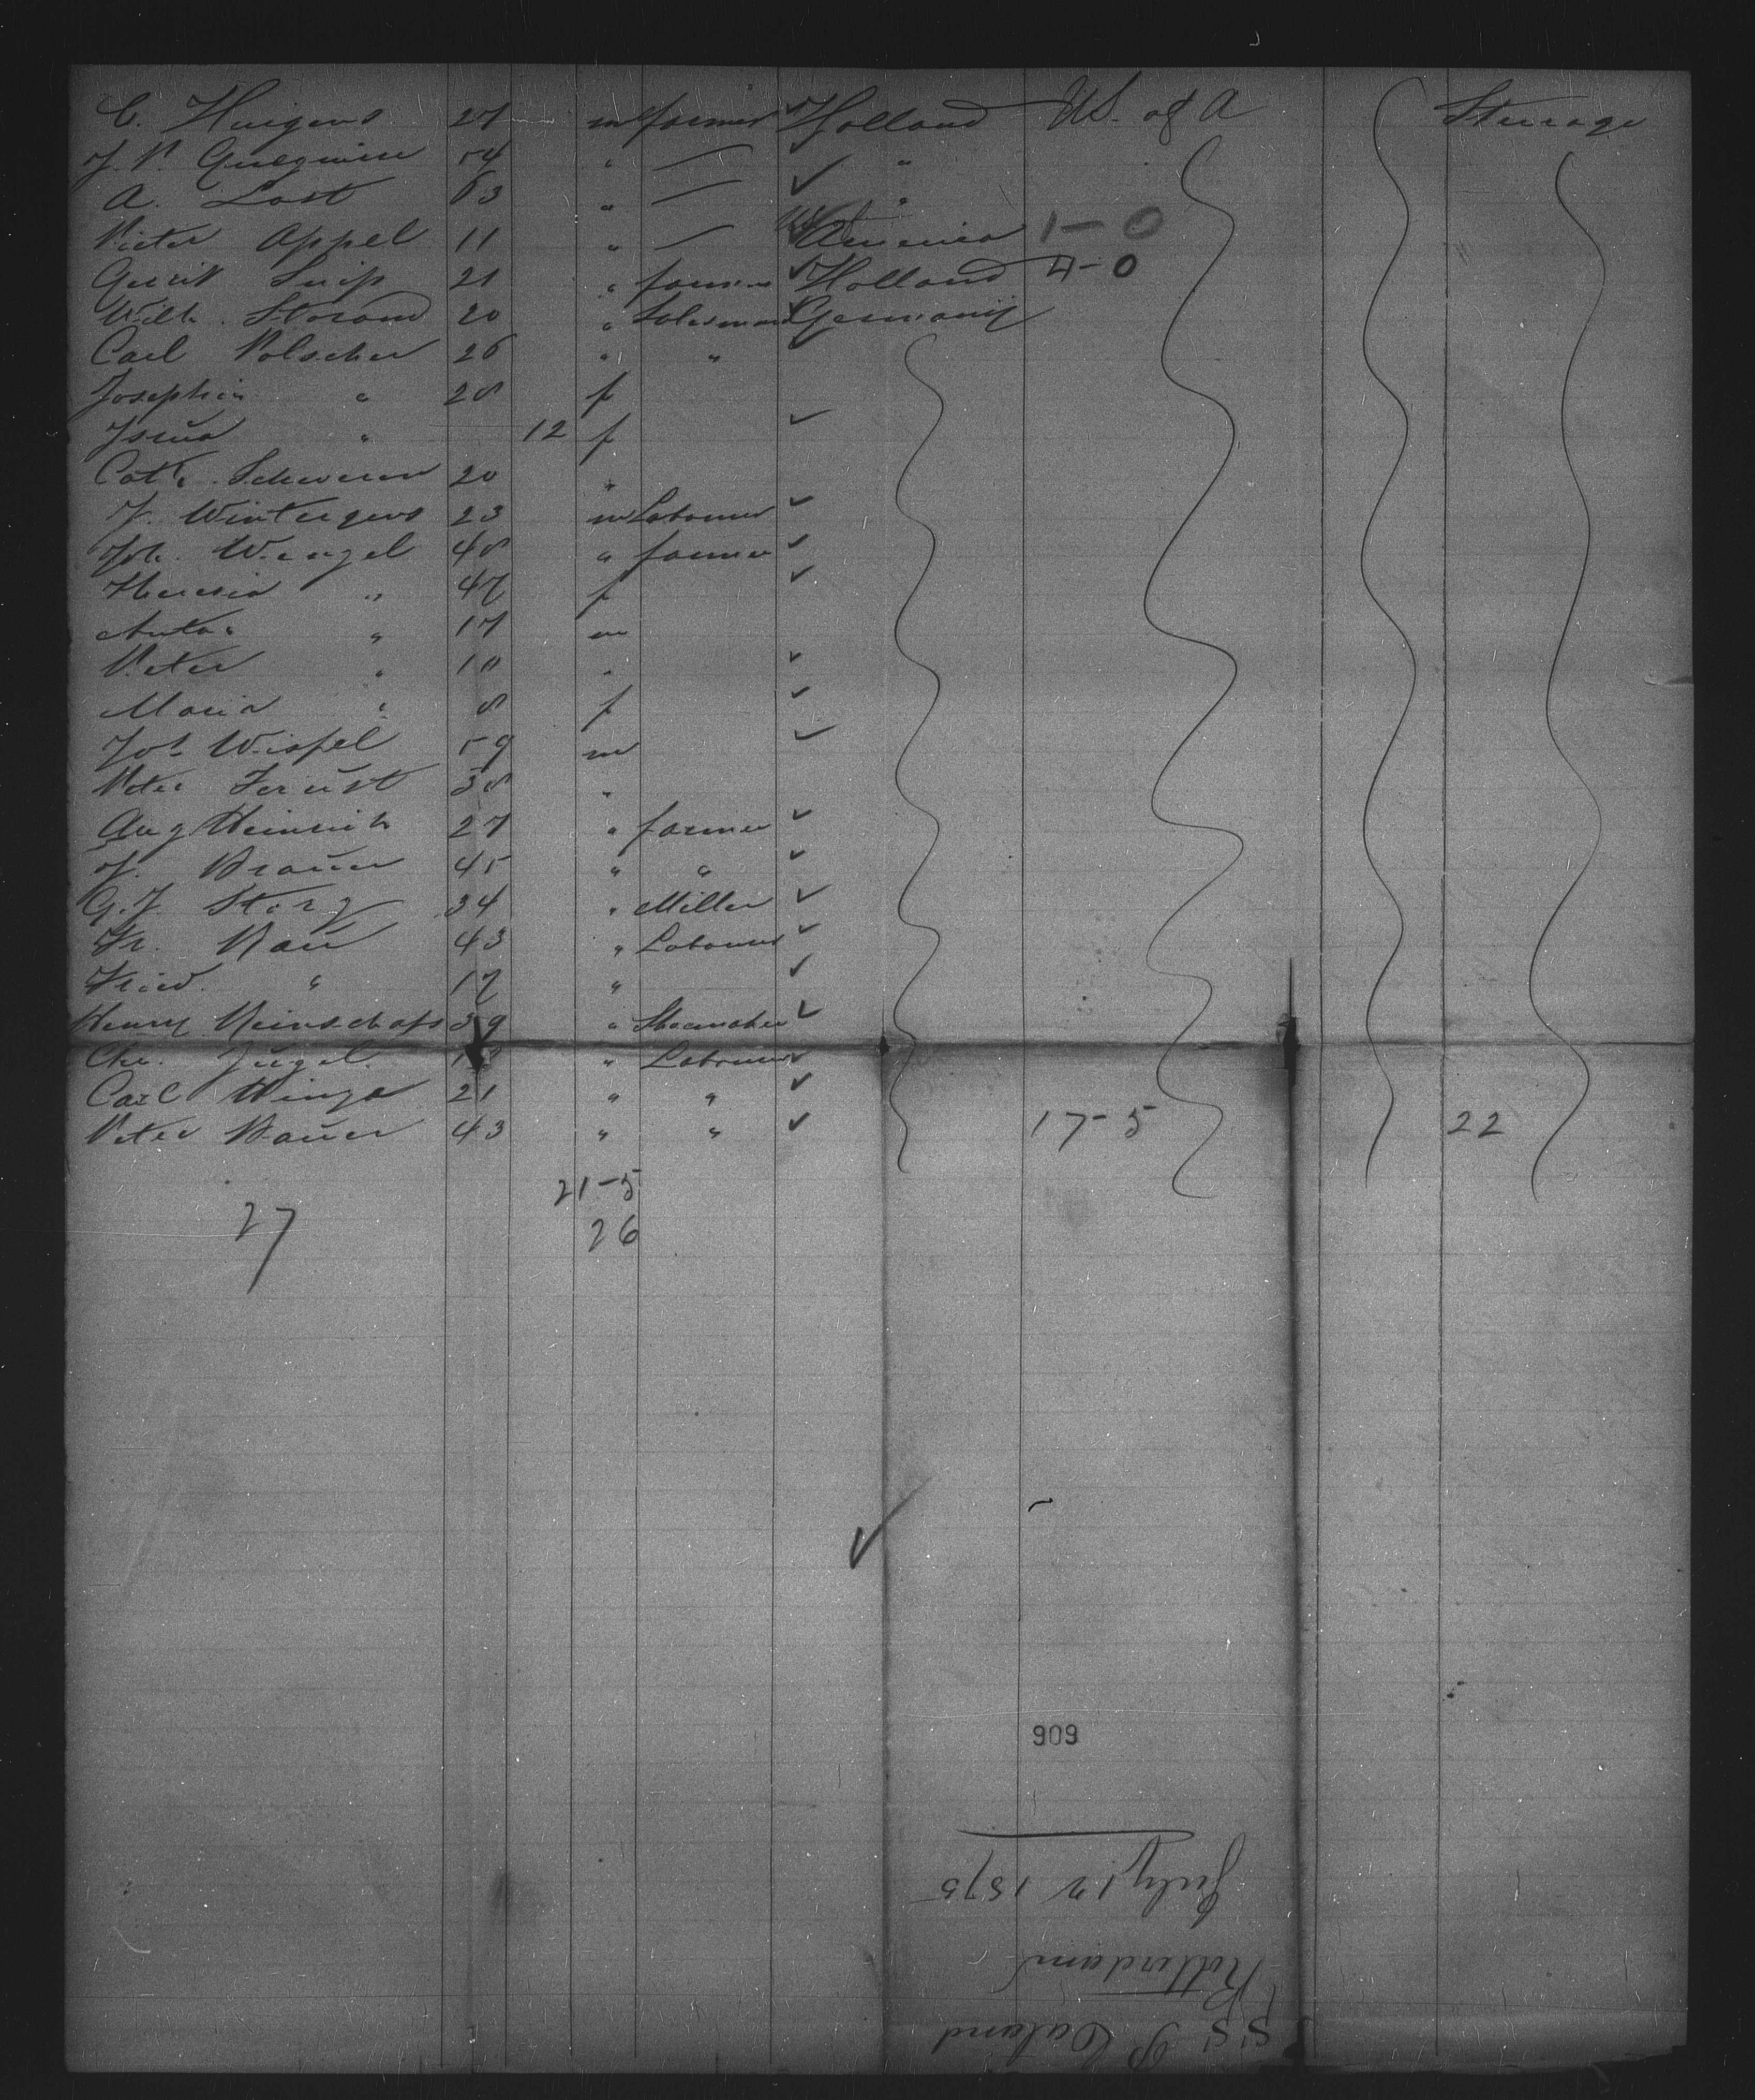 C. Huigens 27 m farmer Holland US. of A Steerage
J. P. 54 " — "
A. Last 63 " — "
Pieter Appel 11 " — US America 1-0
Gerrit Snip 21 " farmer Holland 4-0
Wilh. Storand 20 " Salesman Germany
Carl Polscher 26 " "
Josephin " 28 f
" 12 f
Cath. Schwerer 20 "
J. Wintergens 23 m Labourer
Joh. Wengel 48 " farmer
Theresia " 47 f
Anto. " 17 m
Peter " 10 "
Maria " 8 f
Joh Wispel 59 m
Peter Faust 38 "
Aug Heinrich 27 " farmer
J. Brauer 45 " "
G. J. Storz 34 " Miller
Fr. Rau 43 " Labourer
Fried. " 17 "
Henry Reinschafs 39 " Shoemaker
Chr. Jugel " Labourer
Carl Winge 21 " "
Peter Bauer 43 " " 17-5 22
21-5
27 26
909
SS P. Caland
Rotterdam
July 12 1875